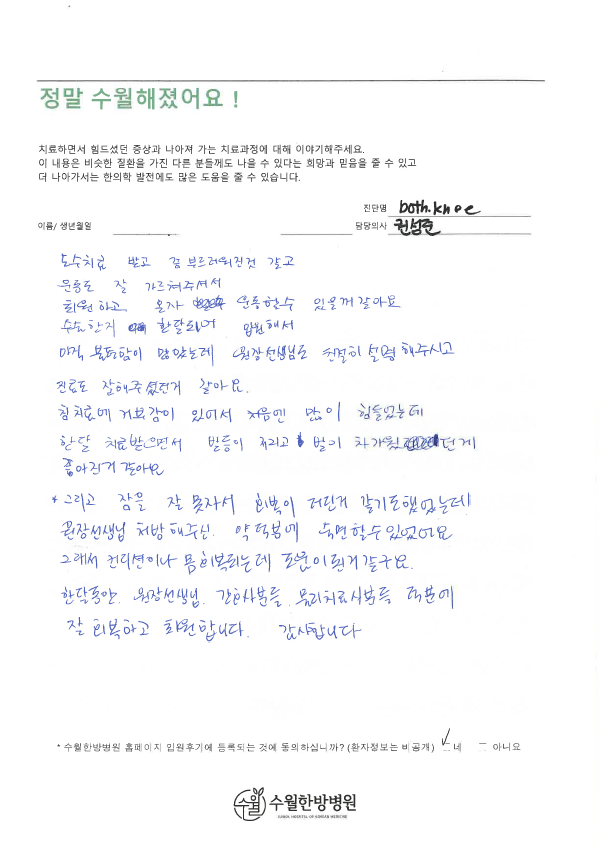 정말 수월해졌어요 !
치료하면서 힘드셨던 증상과 나아져 가는 치료과정에 대해 이야기해주세요.
이 내용은 비슷한 질환을 가진 다른 분들께도 나을 수 있다는 희망과 믿음을 줄 수 있고
더 나아가서는 한의학 발전에도 많은 도움을 줄 수 있습니다.
진단명 both.knee
이름/ 생년월일 담당의사 권성준
도수치료 받고 좀 부드러워진것 같고
운동도 잘 가르쳐주셔서
퇴원하고 혼자 운동할수 있을꺼같아요
수술한지 한달되어 입원해서
아직 불편함이 많았는데 원장선생님도 친절히 설명해주시고
진료도 잘해주셨던거 같아요.
침치료에 거부감이 있어서 처음엔 많이 힘들었는데
한달 치료받으면서 발등이 저리고 발이 차가웠던게
좋아진거 같아요
* 그리고 잠을 잘 못자서 회복이 더딘거 같기도했었는데
원장선생님 처방해주신 약덕분에 숙면할수있었어요
그래서 컨디션이나 몸회복되는데 도움이된거같구요.
한달동안. 원장선생님. 간호사분들. 물리치료사분들 덕분에
잘 회복하고 퇴원합니다. 감사합니다
* 수월한방병원 홈페이지 입원후기에 등록되는 것에 동의하십니까? (환자정보는 비공개) ✓네 아니요
수월 수월한방병원
SUWOL HOSPITAL OF KOREAN MEDICINE